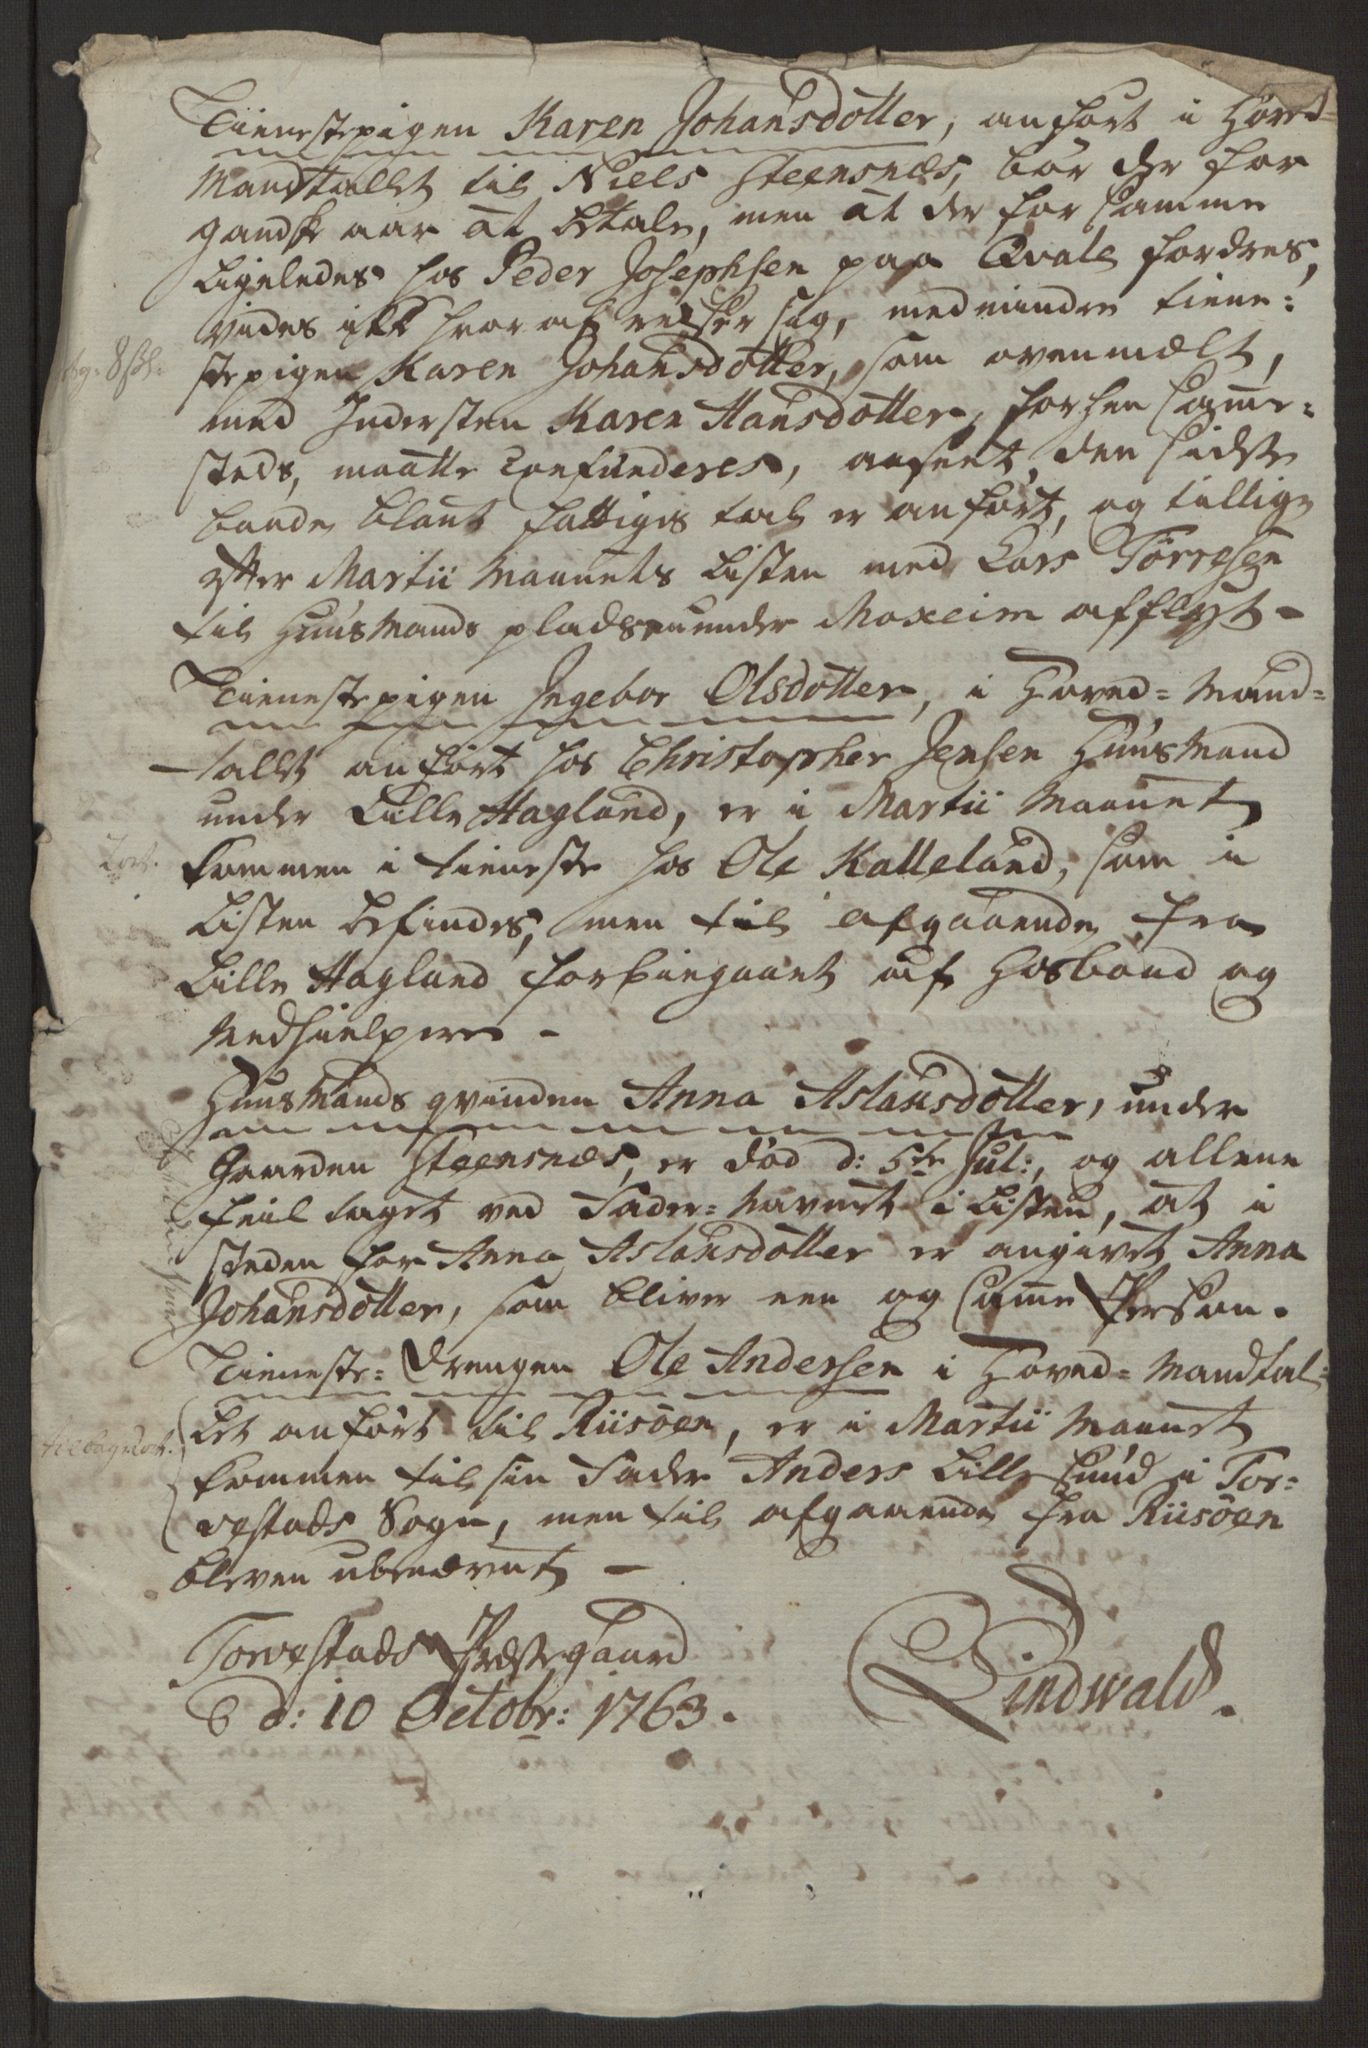 Tienestepigen Karen Johansdotter, anført i Hoved-
Mandtallet til Niels Steensnæs, bør der for
gandske aar at betale, men at der for samme
ligeledes hos Peder Josephsen paa Qvale fordres,
vides ikke hvoraf reiser sig, medmindre tiene-
stepigen Karen Johansdotter, som ovenmælt,
med Indersten Karen Hansdotter, forhen samme-
steds, maatte confunderes, anseet den sidste
baade blant fattiges tal er anført, og tillige
efter Martii Maanets Listen med Lars Törresen
til Huusmands pladsen under Moxeim afflyt -
Tienestepigen Ingebor Olsdotter, i Hoved-Mand-
tallet anført hos Christopher Jensen Huusmand
under Lille Hagland, er i Martii Maanet
kommen i tieneste hos Ole Kalleland, som i
Listen befindes, men til afgaaende fra
Lille Hagland forbiegaaet af Hosbond og
Medhielpere -
Huusmands qvinden Anna Aslaksdotter, under
Gaarden Steensnæs, er død d: 5te Jul:, og allene
feil taget ved Fader-Navnet i Listen, at i
steden for Anna Aslaksdotter er angivet Anna
Johansdotter, som bliver een og samme Person.
Tieneste-Drengen Ole Andersen i Hoved-Mandtal-
let anført til Riisöen, er i Martii Maanet
kommen til sin Fader Anders Lille Sund i Tor-
vestads Sogn, men til afgaaende fra Riisöen
bleven ubenævnt -
Torvestads Præstegaard
d: 10 Octobr: 1763.
Lindwald.
8 sk.